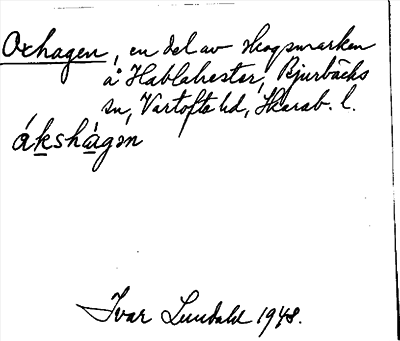 Oxhagen, en del av skogsmarken
å Hablahester, Bjurbäcks
sn, Vartofta hd, Skarab. l.
ákshágən
Ivar Lundahl 1948.